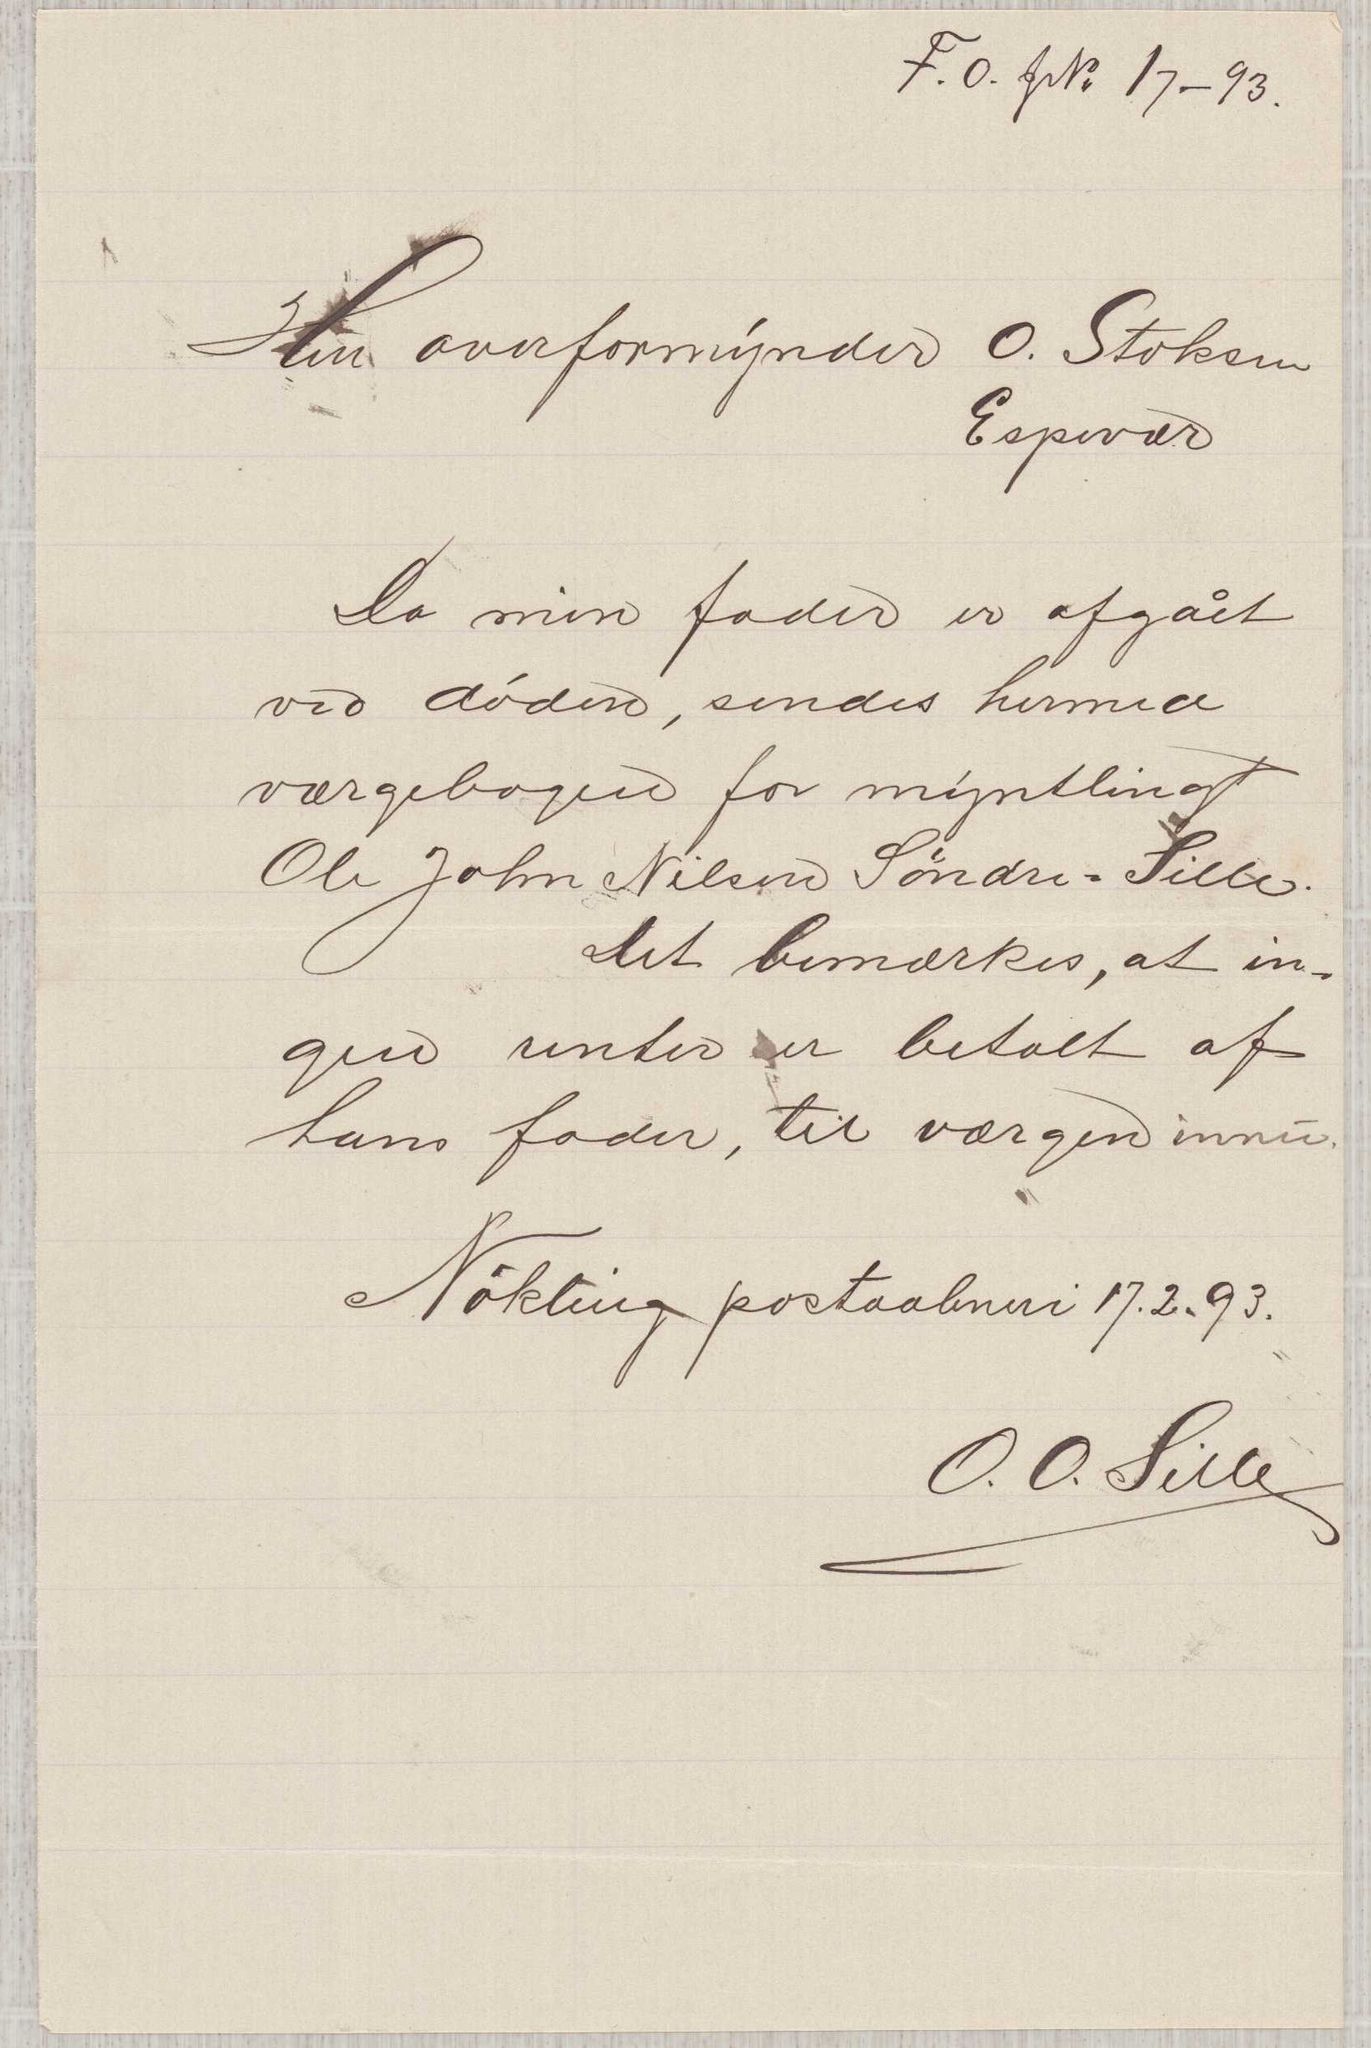 F. O. JN. 17-93.
Herr overformynder O. Stoksen
Espevær
Da min fader er afgået
ved döden, sendes hermed
værgebogen for myntlingt
Ole John Nilsen Söndre-Sille.
Det bemærkes, at in-
gen renter er betalt af
hans fader, til værgen innu.
Nökling postaabneri 17.2.93.
O. O. Sille